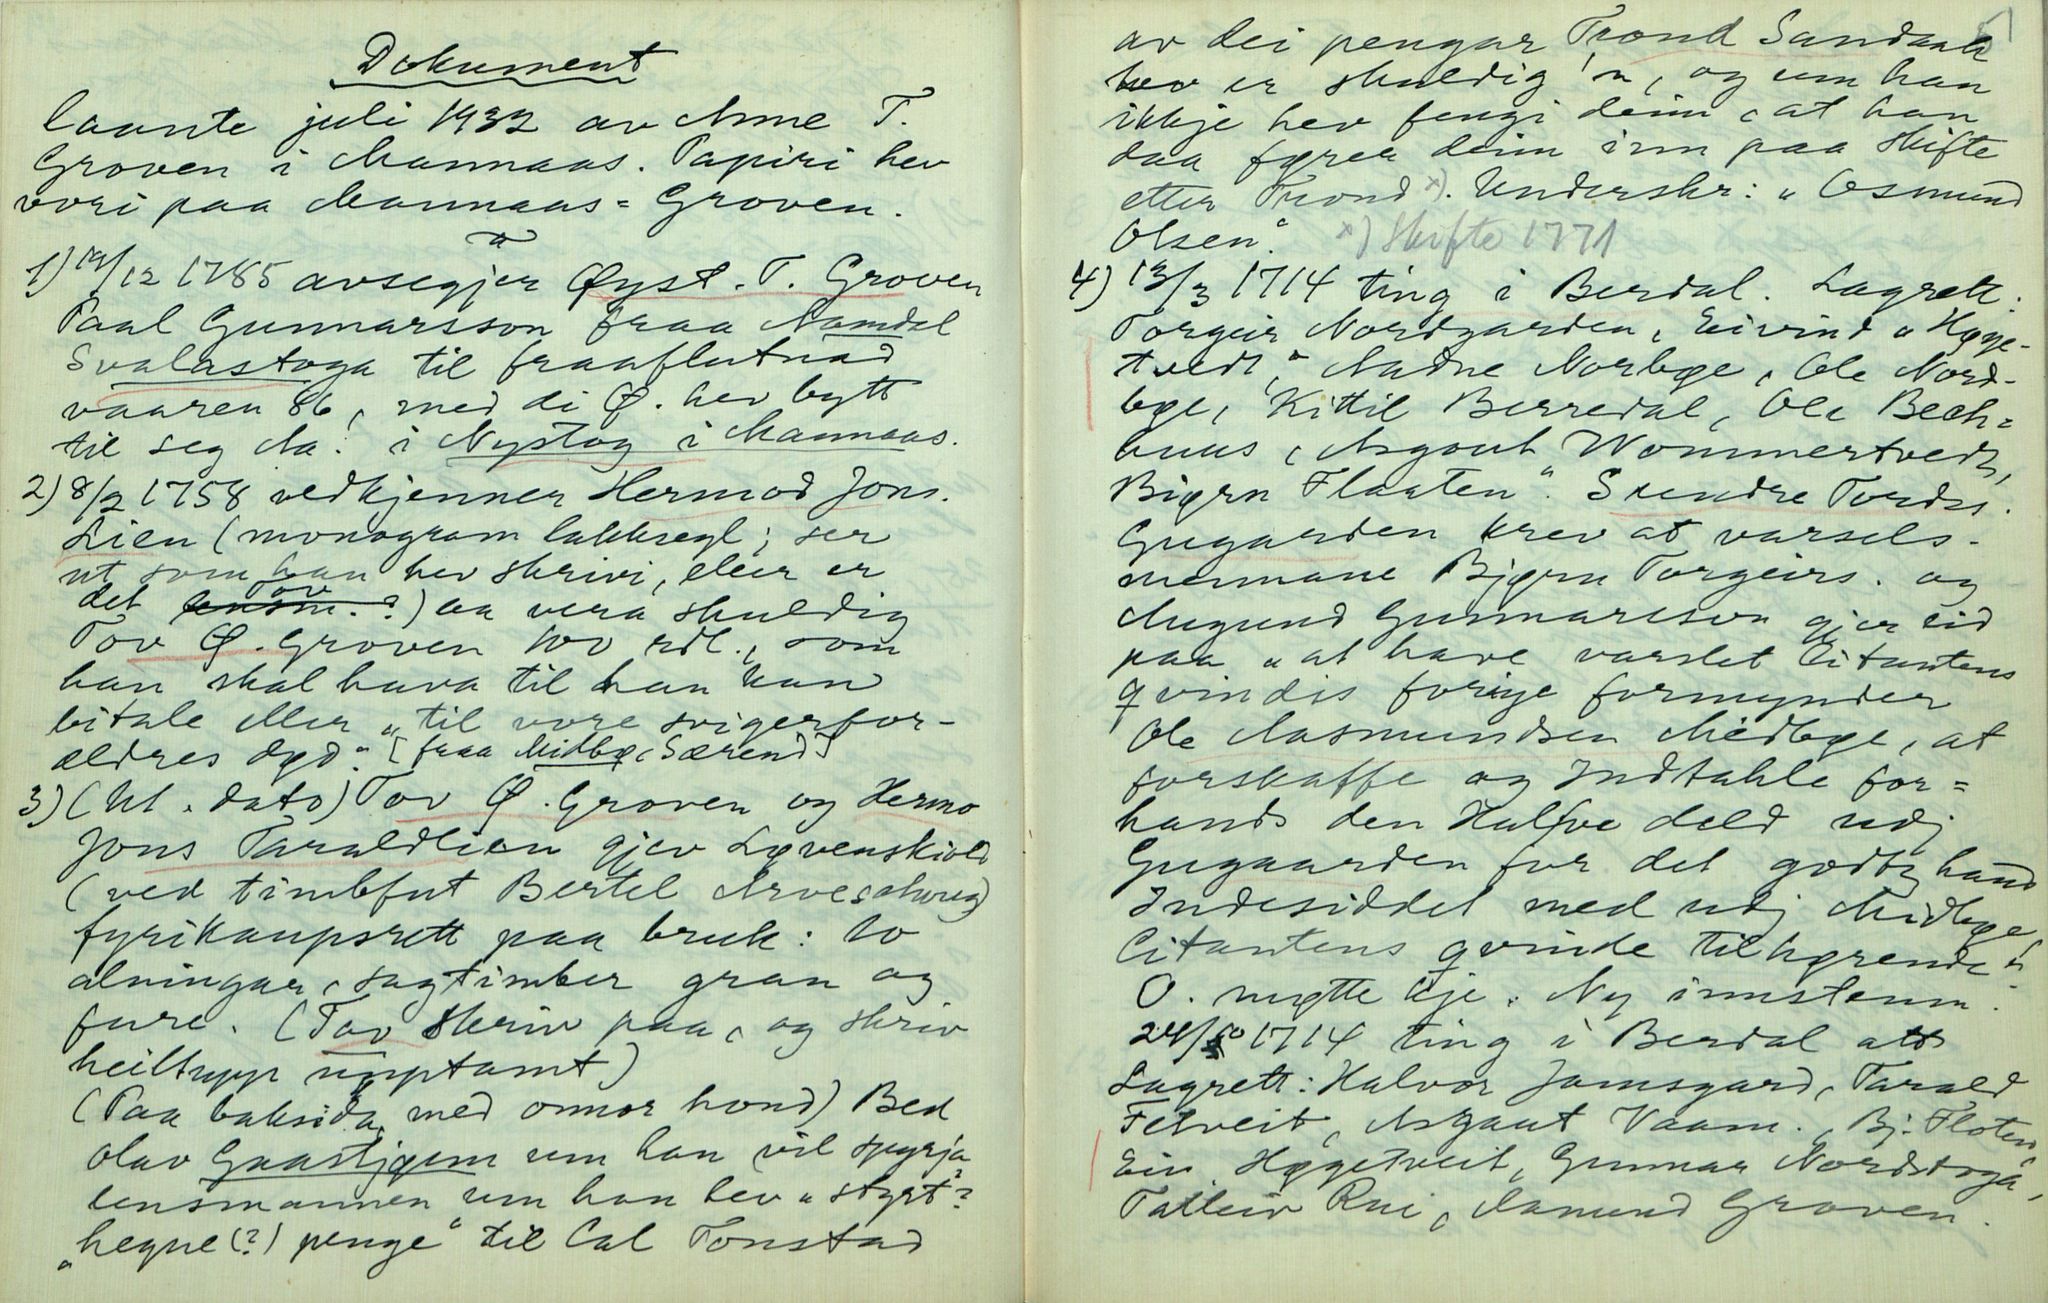 Dokument
laante juli 1932 av Anne T.
Groven i Mannaas. Papiri hev
vori paa Mannaas=Groven.
1) 19/12 1785 avsegjer Øyst. T. Groven
Paal Gunnarsson fraa Namdal
Svalastoga til fraaflutnad
vaaren 86, med di Ø. hev bytt
til seg i Nystog i Mannaas.
2) 8/2 1758 vedkjenner Hermod Jons.
Lien (monogram lakksegl; ser
ut som han hev skrivi, eller er
det lensm. Tov ?) aa vera skuldig
Tov Ø. Groven 100 rdl., som
han skal hava til han kan
bitale eller "til vore svigerfor-
ældres død." [fraa Midbø, Særend]
3) (Ut. dato) Tov Ø. Groven og Hermo
Jons Taraldlien gjev Løvenskiold
(ved timbfut Bertel Arveschoug)
fyrikaupsrett paa bruk: 10
alningar, sagtimber gran og
fure. (Tov skriv paa, og skriv
heiltupp upptamt)
(Paa baksida, med onnor hond) Bed
Olav Gaastjønn um han vil spyrja
lensmannen um han hev "styrt"?
"hegne (?) penge" til Cal Tonstad
av dei pengar Trond Sandaak
hev er skuldig 'n, og um han
ikkje hev fengi deim, at han
daa fører deim inn paa skifte
etter Trond x). Underskr: "Osmund
Olsen". x) Skifte 1771
4) 13/3 1714 ting i Berdal. Lagrett:
Torgeir Nordgarden, Eivind "Høge-
tvedt", Aadne Norbøe, Ole Nord-
bøe, Kittil Berredal, Ole Bech=
huus, Asgout Wommertvedt,
Biørn Flaaten". Svendre Tordss.
Gugarden krev at varsels-
mennane Bjørn Torgeirs. og
Augund Gunnarsson gjer eid
paa "at have varslet Citantens
qvindis forige formynder
Ole Aasmundsen Midbøe, at
forskaffe og Indtahle for=
hands den Halfve deld udj
Gugaarden for det godtz hand
Indesiddet med udj Midbøe,
Citantens qvinde tilhørende".
O. møtte ikje. Ny innstemn.
24/10 1714 ting i Berdal att
Lagrett: Halvor Jamsgard, Tarald
Felveit, Asgaut Vaam., Bj. Floten,
Eiv. Høgetveit, Gunnar Nordstoga,
Talleiv Rui, Aamund Groven.